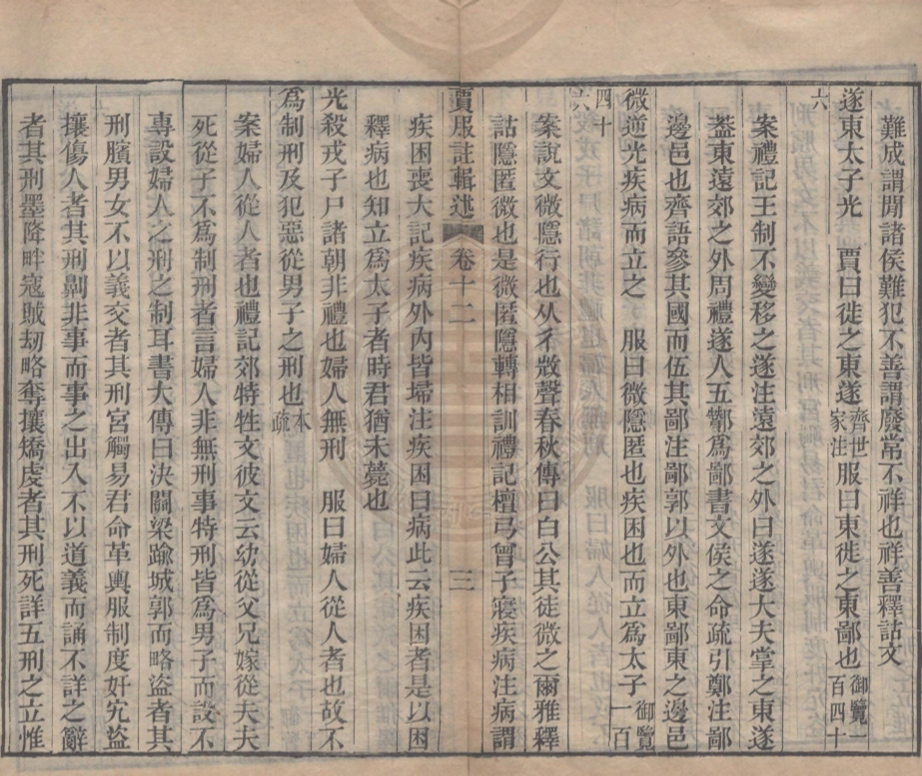 難成謂聞諸侯難犯不善謂廢常不祥也祥善釋詁文
遂東太子光　賈曰徙之東遂齊世家注服曰東徙之東鄙也御覽一百四十
六
案禮記王制不變移之遂注遠郊之外曰遂遂大夫掌之東遂
葢東遠郊之外周禮遂人五酇爲鄙書文侯之命疏引鄭注鄙
邊邑也齊語參其國而伍其鄙注鄙郭以外也東鄙東之邊邑
微逆光疾病而立之　服曰微隱匿也疾困也而立爲太子御覽一百
四十六
案說文微隱行也从彳𢼸聲春秋傳曰白公其徒微之爾雅釋
詁隱匿微也是微匿隱轉相訓禮記檀弓曾子寢疾病注病謂
賈服註輯述　卷十二　三
疾困喪大記疾病外內皆埽注疾困曰病此云疾困者是以困
釋病也知立爲太子者時君猶未薨也
光殺戎子尸諸朝非禮也婦人無刑　服曰婦人從人者也故不
爲制刑及犯惡從男子之刑也本疏
案婦人從人者也禮記郊特牲文彼文云幼從父兄嫁從夫夫
死從子不爲制刑者言婦人非無刑事特刑皆爲男子而設不
專設婦人之刑之制耳書大傳曰決關梁踰城郭而略盜者其
刑臏男女不以義交者其刑宮觸易君命革輿服制度奸宄盜
攘傷人者其刑劓非事而事之出入不以道義而誦不詳之辭
者其刑墨降畔寇賊劫略奪攘矯虔者其刑死詳五刑之立惟